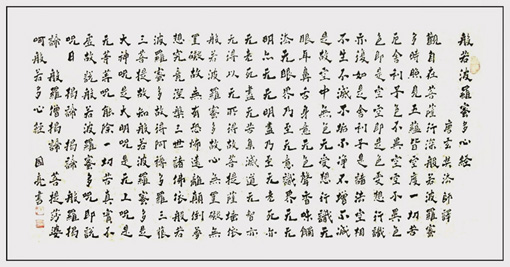 般若波羅蜜多心經
唐玄奘法師譯
觀自在菩薩行深般若波羅蜜
多時照見五蘊皆空度一切苦
厄舍利子色不異空空不異色
色即是空空即是色受想行識
亦復如是舍利子是諸法空相
不生不滅不垢不淨不增不減
是故空中無色无受想行識无
眼耳鼻舌身意无色聲香味觸
法无眼界乃至无意識界无无
明亦无无明盡乃至无老死亦
无老死盡无苦集滅道无智亦
无得以无所得故菩提薩埵依
般若波羅蜜多故心無罣礙無
罣礙故無有恐怖遠離顛倒夢
想究竟涅槃三世諸佛依般若
波羅蜜多故得阿耨多羅三藐
三菩提故知般若波羅蜜多是
大神咒是大明咒是无上咒是
无等等咒能除一切苦真實不
虛故說般若波羅蜜多咒即說
呪曰 揭諦 揭諦 般羅揭
諦 般羅僧揭諦 菩提莎婆
呵 般若多心經 亮書